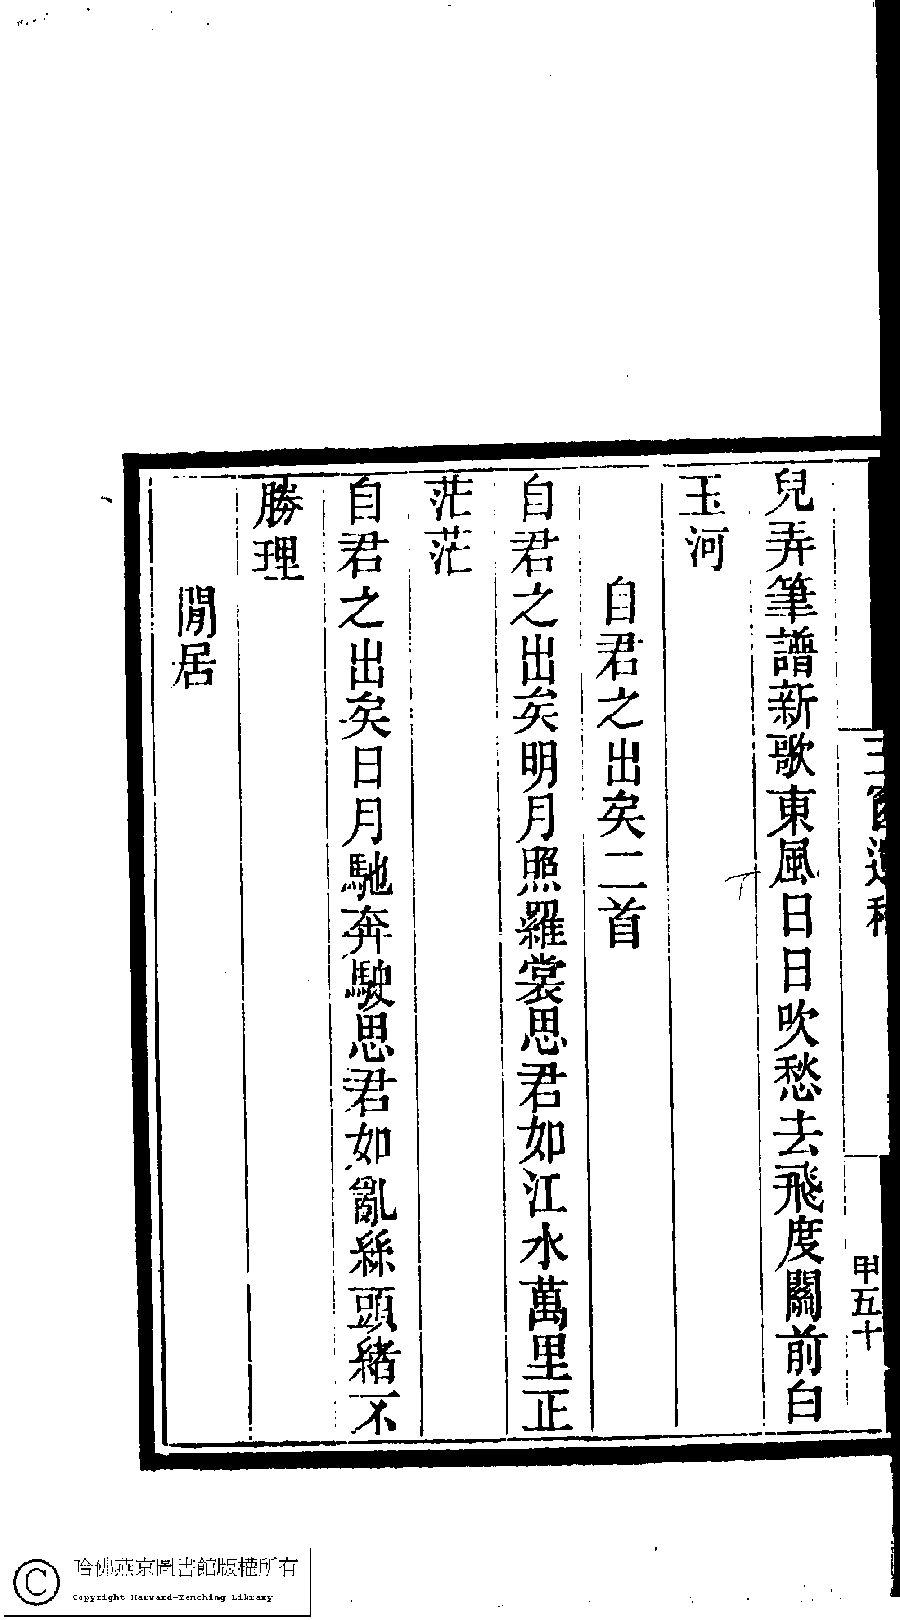 兒弄筆譜新歌東風日日吹愁去飛度關前白
玉河
自君之出矣二首
自君之出矣明月照羅裳思君如江水萬里正
茫茫
自君之出矣日月馳奔駛思君如亂絲頭緒不
勝理
閒居
甲五十
哈佛燕京圖書館版權所有
Copyright Harvard-Yenching Library